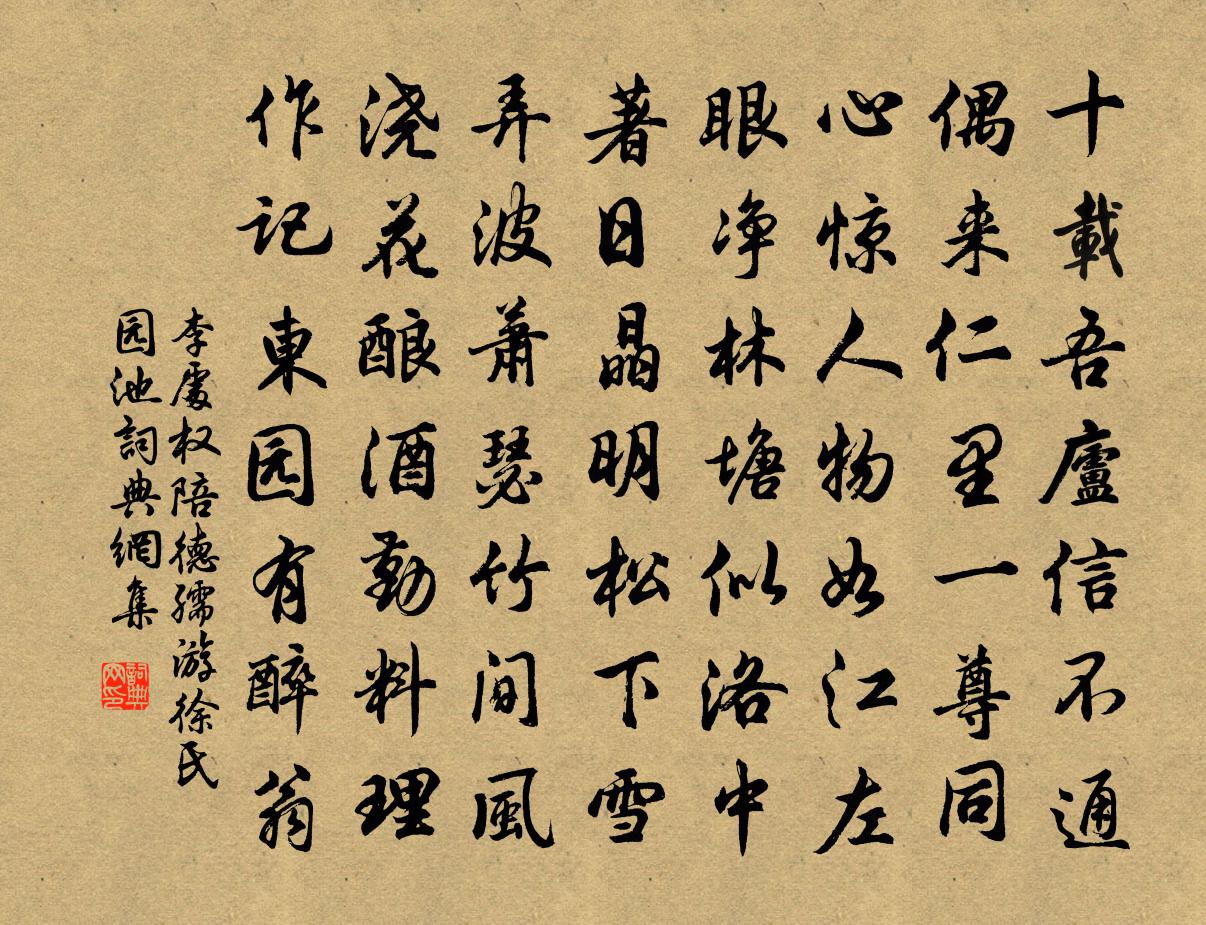 十載吾廬信不通
偶来仁里一尊同
心惊人物如江左
眼净林塘似洛中
著日晶明松下雪
弄波萧瑟竹间風
浇花酿酒勤料理
作记東园有醉翁
李處权陪德孺游徐氏
园池詞典網集
詞典
网印